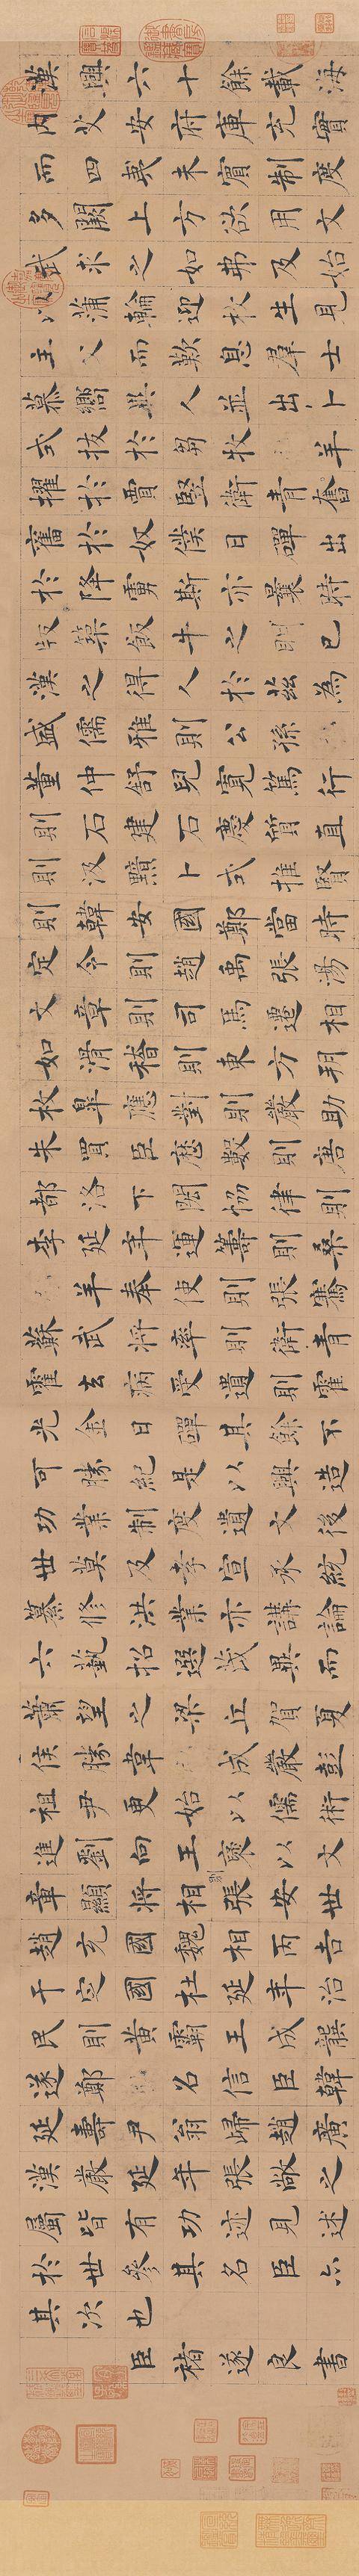 漢興六十餘載海
內艾安府庫充實
而四夷未賓制度
多闕上方欲用文
武求之如弗及始
以蒲輪迎枚生見
主父而歎息群士
慕嚮異人並出卜
式拔於芻牧羊
擢於賈豎衛青奮
舊於奴僕日磾出
於降虜斯亦曩時
版築飯牛之朋已
漢之得人於茲為
盛儒雅則公孫
董仲舒兒寬篤行
則石建石慶質直
則汲黯卜式推賢
則韓安國鄭當時
定令則趙禹張湯
文章則司馬遷相
如滑稽則東方朔
枚皋應對則嚴助
朱買臣歷數則唐
都洛下閎協律則
李延年運籌則桑
羊奉使則張騫
蘇武將率則衛青
霍去病受遺則霍
光金日磾其餘不
可勝紀是以興造
功業制度遺文後
世莫及孝宣承統
纂修洪業亦講論
六藝招選茂異而
蕭望之梁丘賀夏
侯勝韋成嚴彭
祖尹更始以儒術
進劉向王褒以文
章顯將相則張安世
趙充國魏相丙吉
于定國杜延年治
民則黃霸王成龔
遂鄭名信臣韓
延壽尹翁歸趙廣
漢嚴延年張敞之
屬皆有功迹見述
於世參其名臣亦
其次也
臣褚遂良書